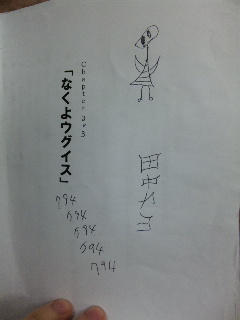 田中
Chapter
「なくよウグイス」
794
794
794
794
794